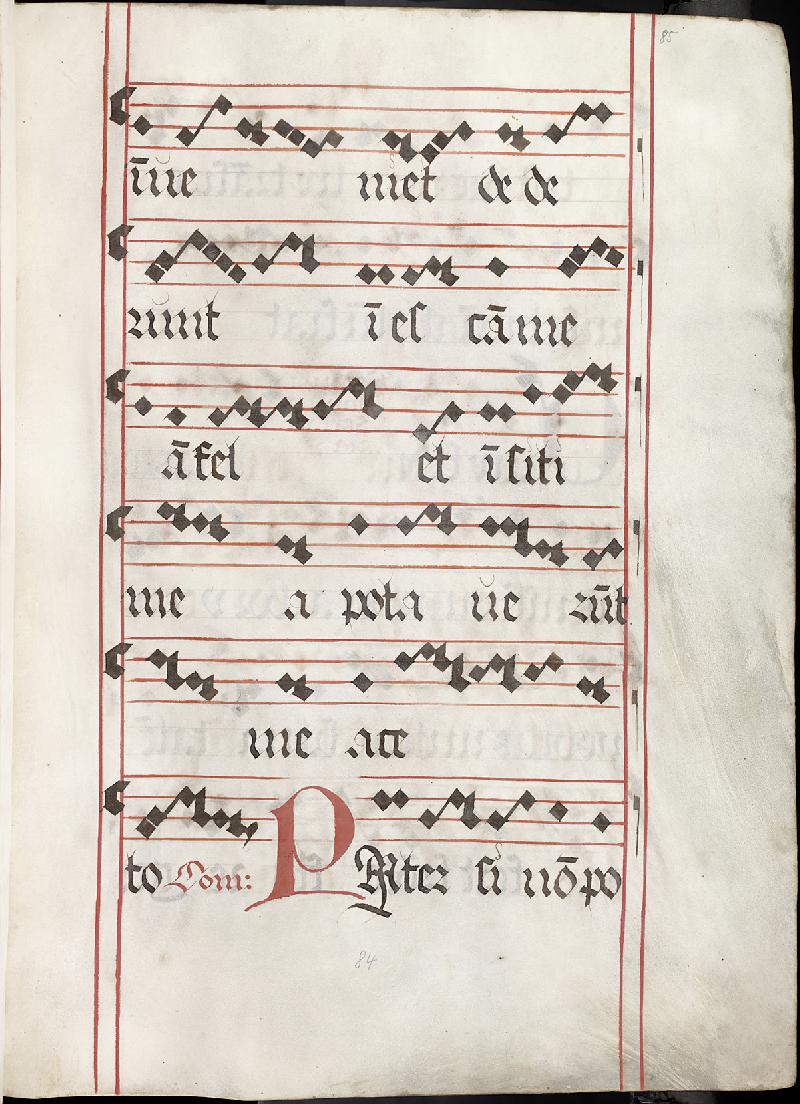 85
īue niet dede
runt ī eſ cā me
ā fel et ī ſiti
me a pota ue rūt
me ace
to Com: PAter ſi nō po
84